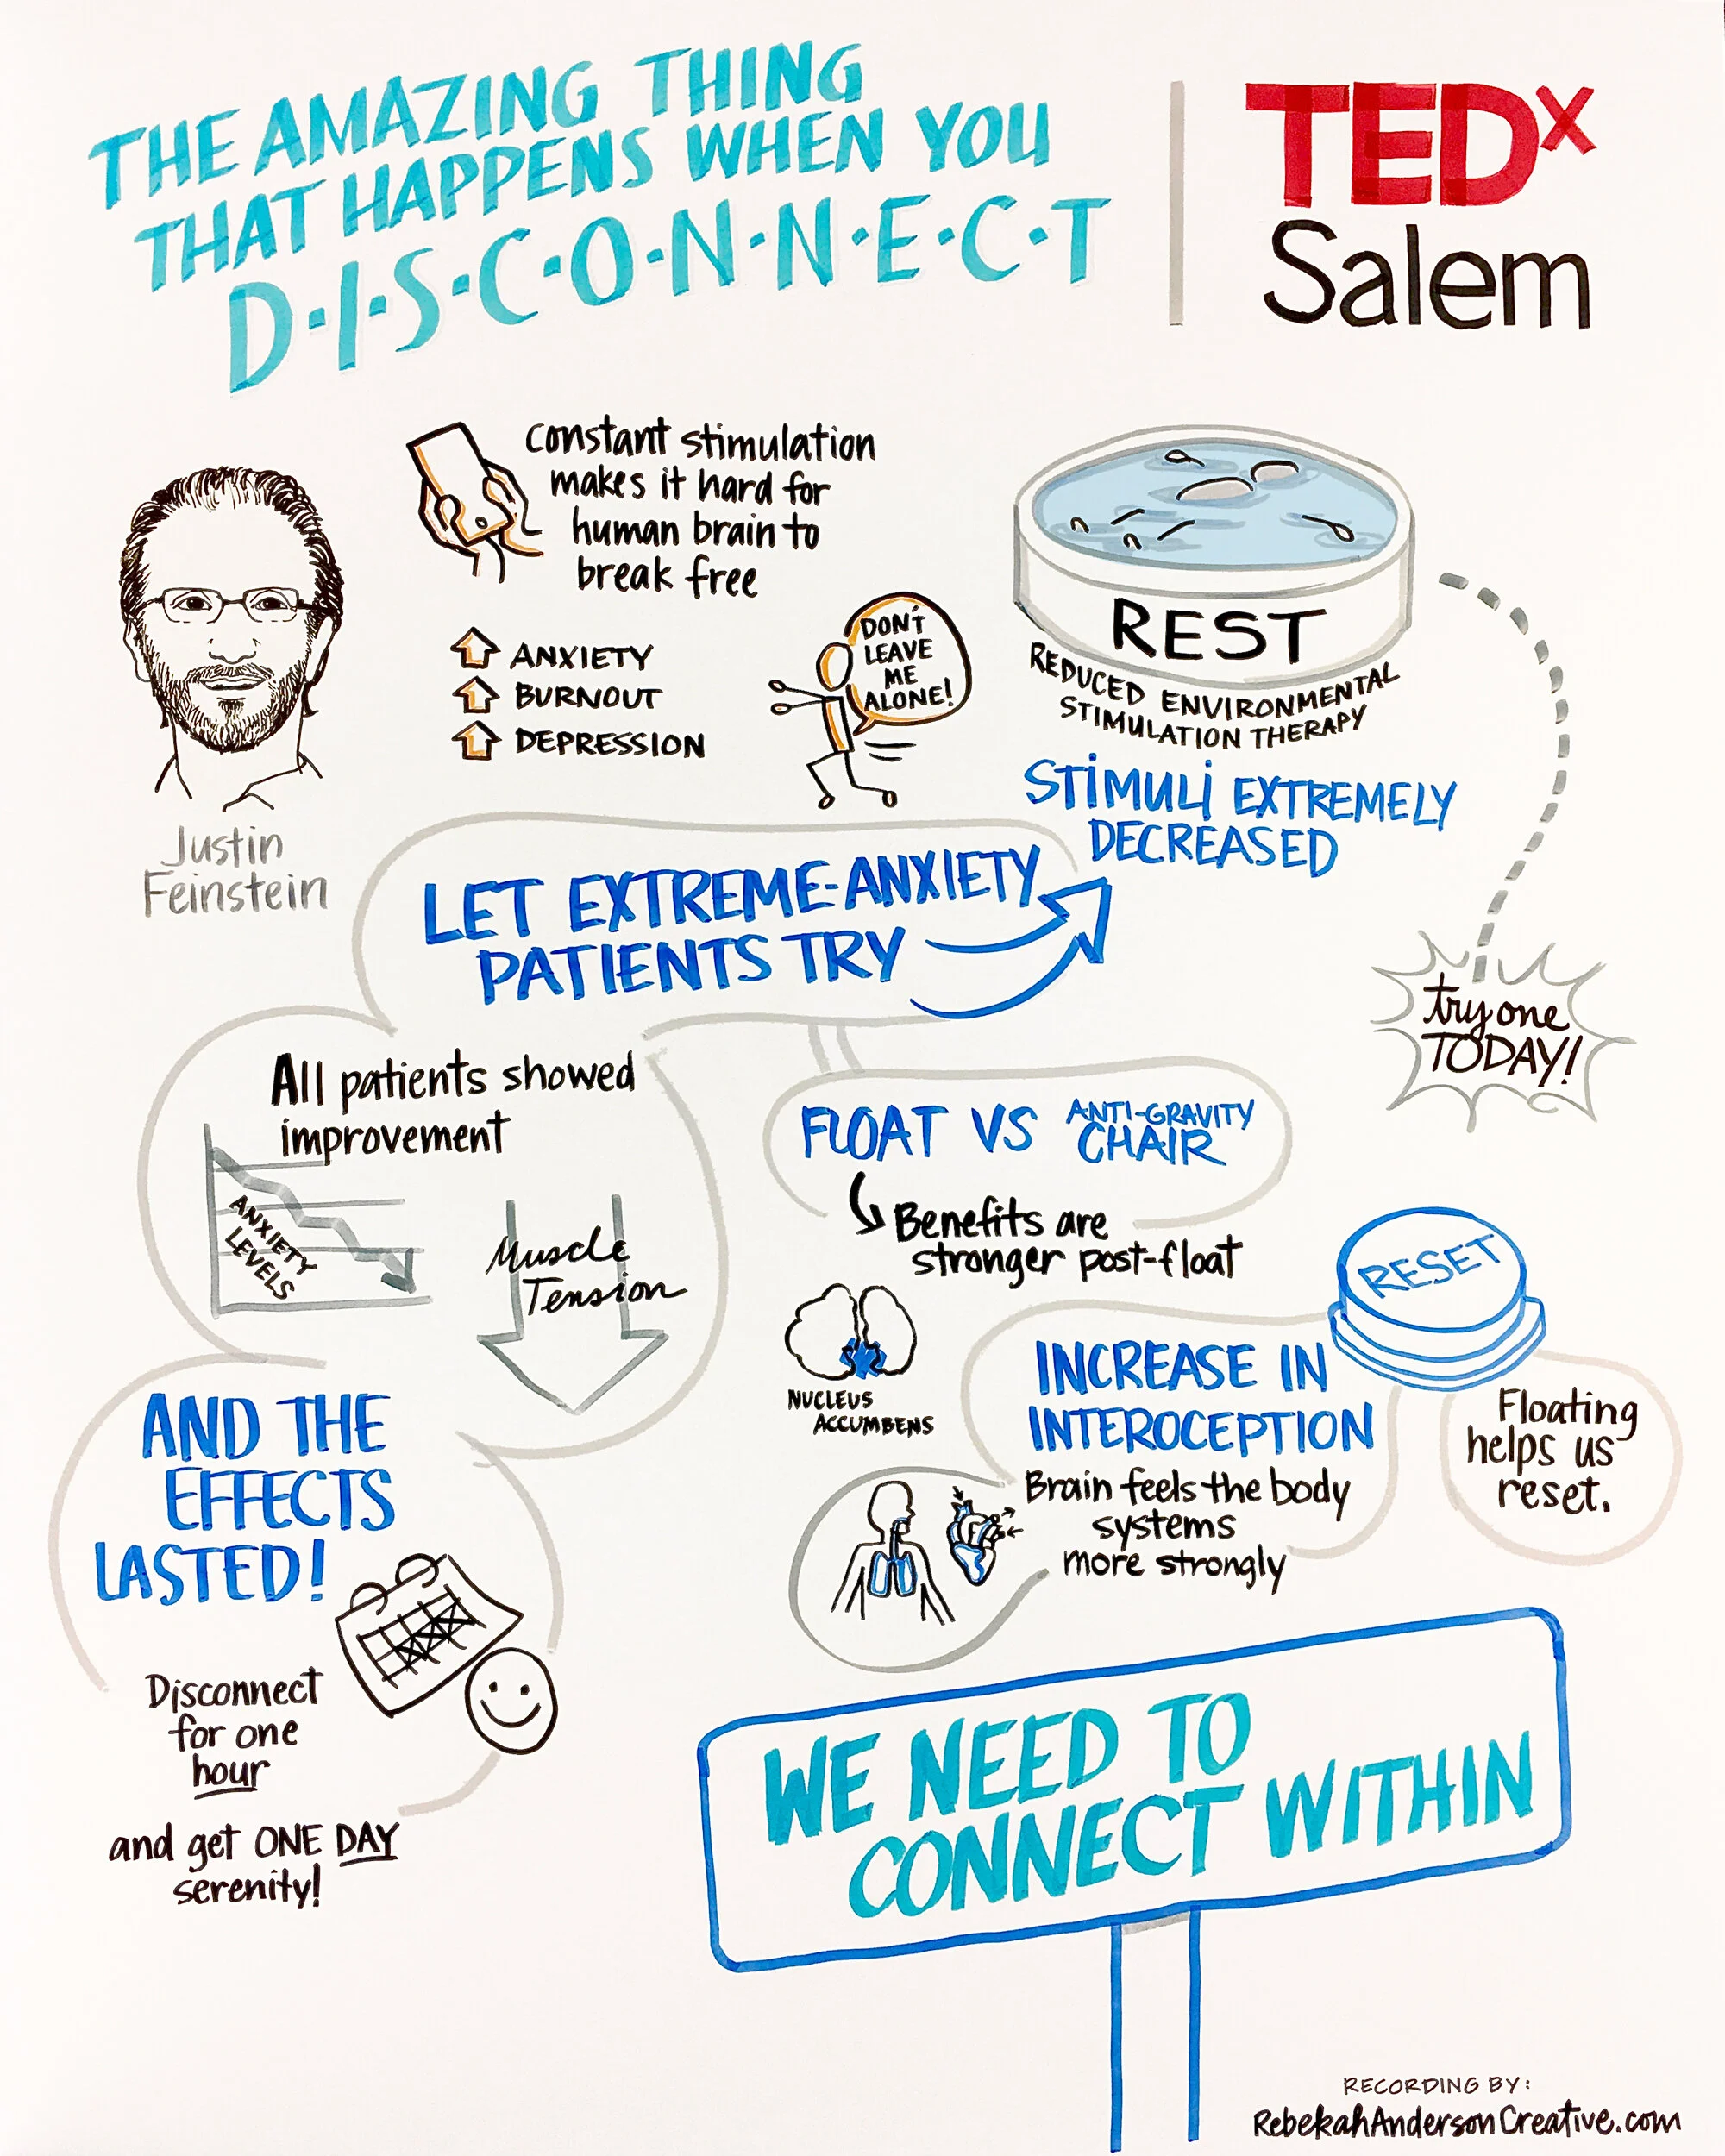 THE AMAZING THING
THAT HAPPENS WHEN YOU
D·I·S·C·O·N·N·E·C·T
TEDx
Salem
Justin
Feinstein
Constant stimulation
makes it hard for
human brain to
break free
ANXIETY
BURNOUT
DEPRESSION
DON'T
LEAVE
ME
ALONE!
REST
REDUCED ENVIRONMENTAL
STIMULATION THERAPY
STIMULI EXTREMELY
DECREASED
try one
TODAY!
LET EXTREME-ANXIETY
PATIENTS TRY
All patients showed
improvement
ANXIETY
LEVELS
Muscle
Tension
AND THE
EFFECTS
LASTED!
Disconnect
for one
hour
and get ONE DAY
serenity!
FLOAT VS ANTI-GRAVITY
CHAIR
Benefits are
stronger post-float
NUCLEUS
ACCUMBENS
INCREASE IN
INTEROCEPTION
Brain feels the body
systems
more strongly
RESET
Floating
helps us
reset.
WE NEED TO
CONNECT WITHIN
RECORDING BY:
RebekahAndersonCreative.com